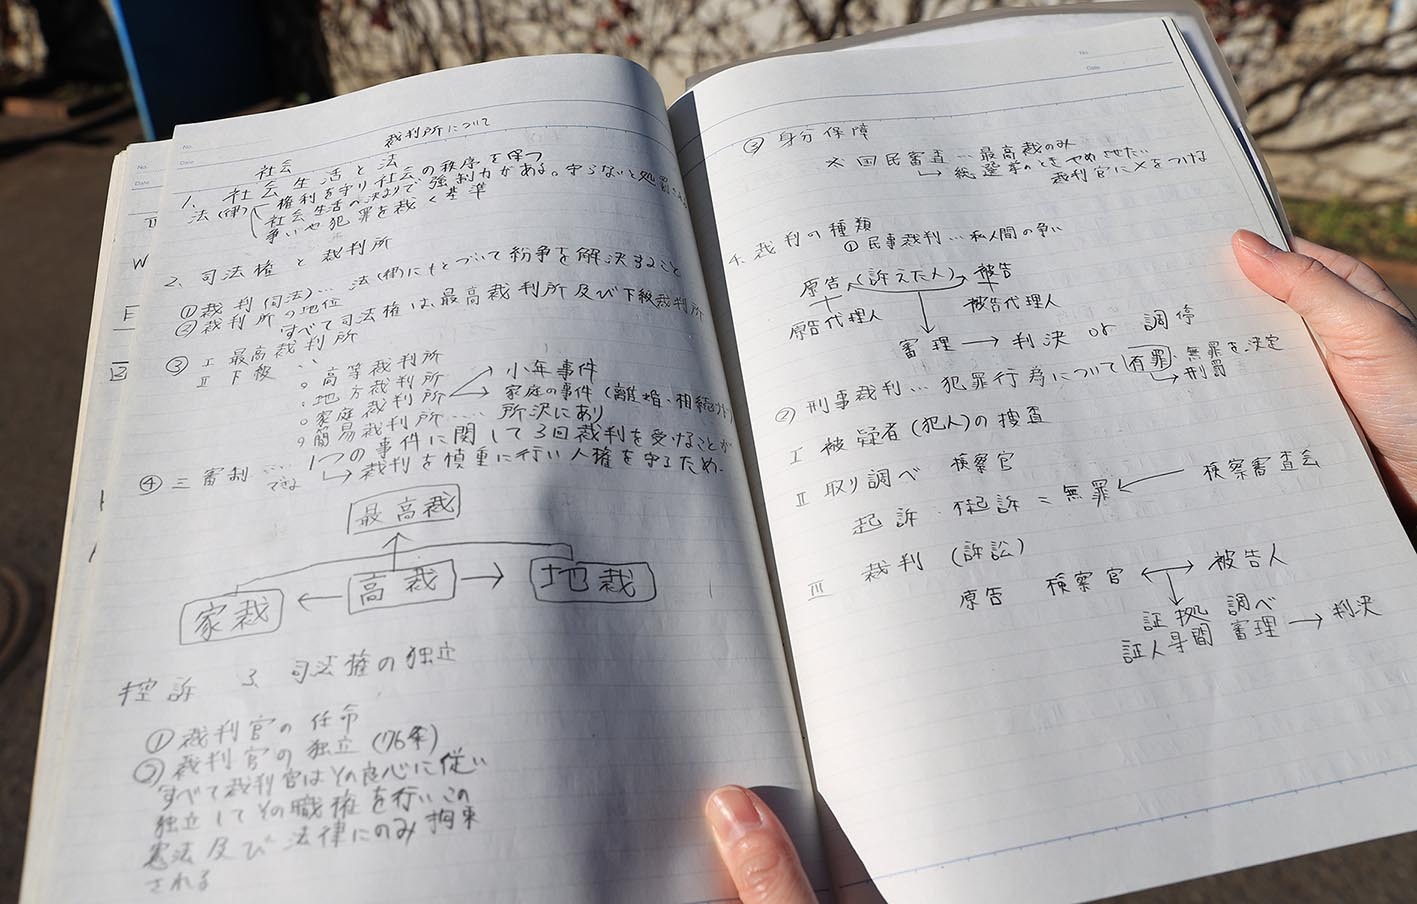 No.
Date
裁判所について
社会 と 法
1. 社会生活 社会の秩序を保つ
法(律) 権利を守り 強制力がある。守らないと処罰
社会生活の決まりで
争いや犯罪を裁く基準
2. 司法権と裁判所
① 裁判(司法)… 法(律)にもとづいて紛争を解決すること
② 裁判所の地位
すべて司法権は最高裁判所及び下級裁判所
③ I 最高裁判所
II 下級 〃
○ 高等裁判所
○ 地方裁判所 → 小年事件
○ 家庭裁判所 → 家庭の事件(離婚・相続
○ 簡易裁判所…… 所沢にあり
④ 三審制… 1つの事件に関して3回裁判を受けることが
できる → 裁判を慎重に行い人権を守るため
最高裁
家裁 ← 高裁 → 地裁
控訴 3. 司法権の独立
① 裁判官の任命
② 裁判官の独立(76条)
すべて裁判官はその良心に従い
独立してその職権を行いこの
憲法及び法律にのみ拘束
される
No.
Date
③ 身分保障
※ 国民審査… 最高裁のみ
→ 総選挙のときやめさせたい
裁判官に×をつける
4. 裁判の種類
① 民事裁判… 私人間の争い
原告(訴えた人)→ 被告
原告代理人 被告代理人
審理 → 判決 or 調停
② 刑事裁判… 犯罪行為について有罪、無罪を決定
→ 刑罰
I 被疑者(犯人)の捜査
II 取り調べ 検察官
起訴・不起訴=無罪 ← 検察審査会
III 裁判(訴訟)
原告 検察官 ↔ 被告人
証拠調べ
証人尋問 審理 → 判決